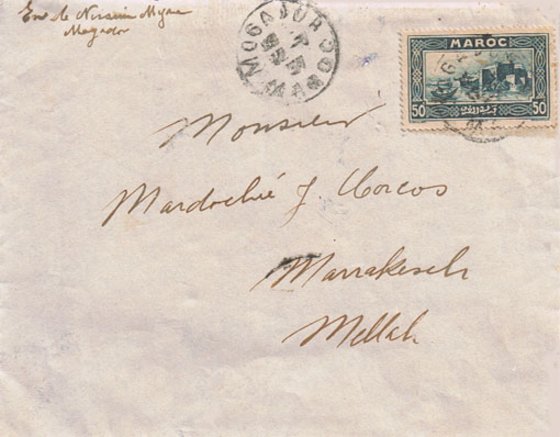 Env de Nissim
Mogador
MOGADOR
MAROC
MAROC
50 50
Monsieur
Mardochée J. Corcos
Marrakesch
Mellah